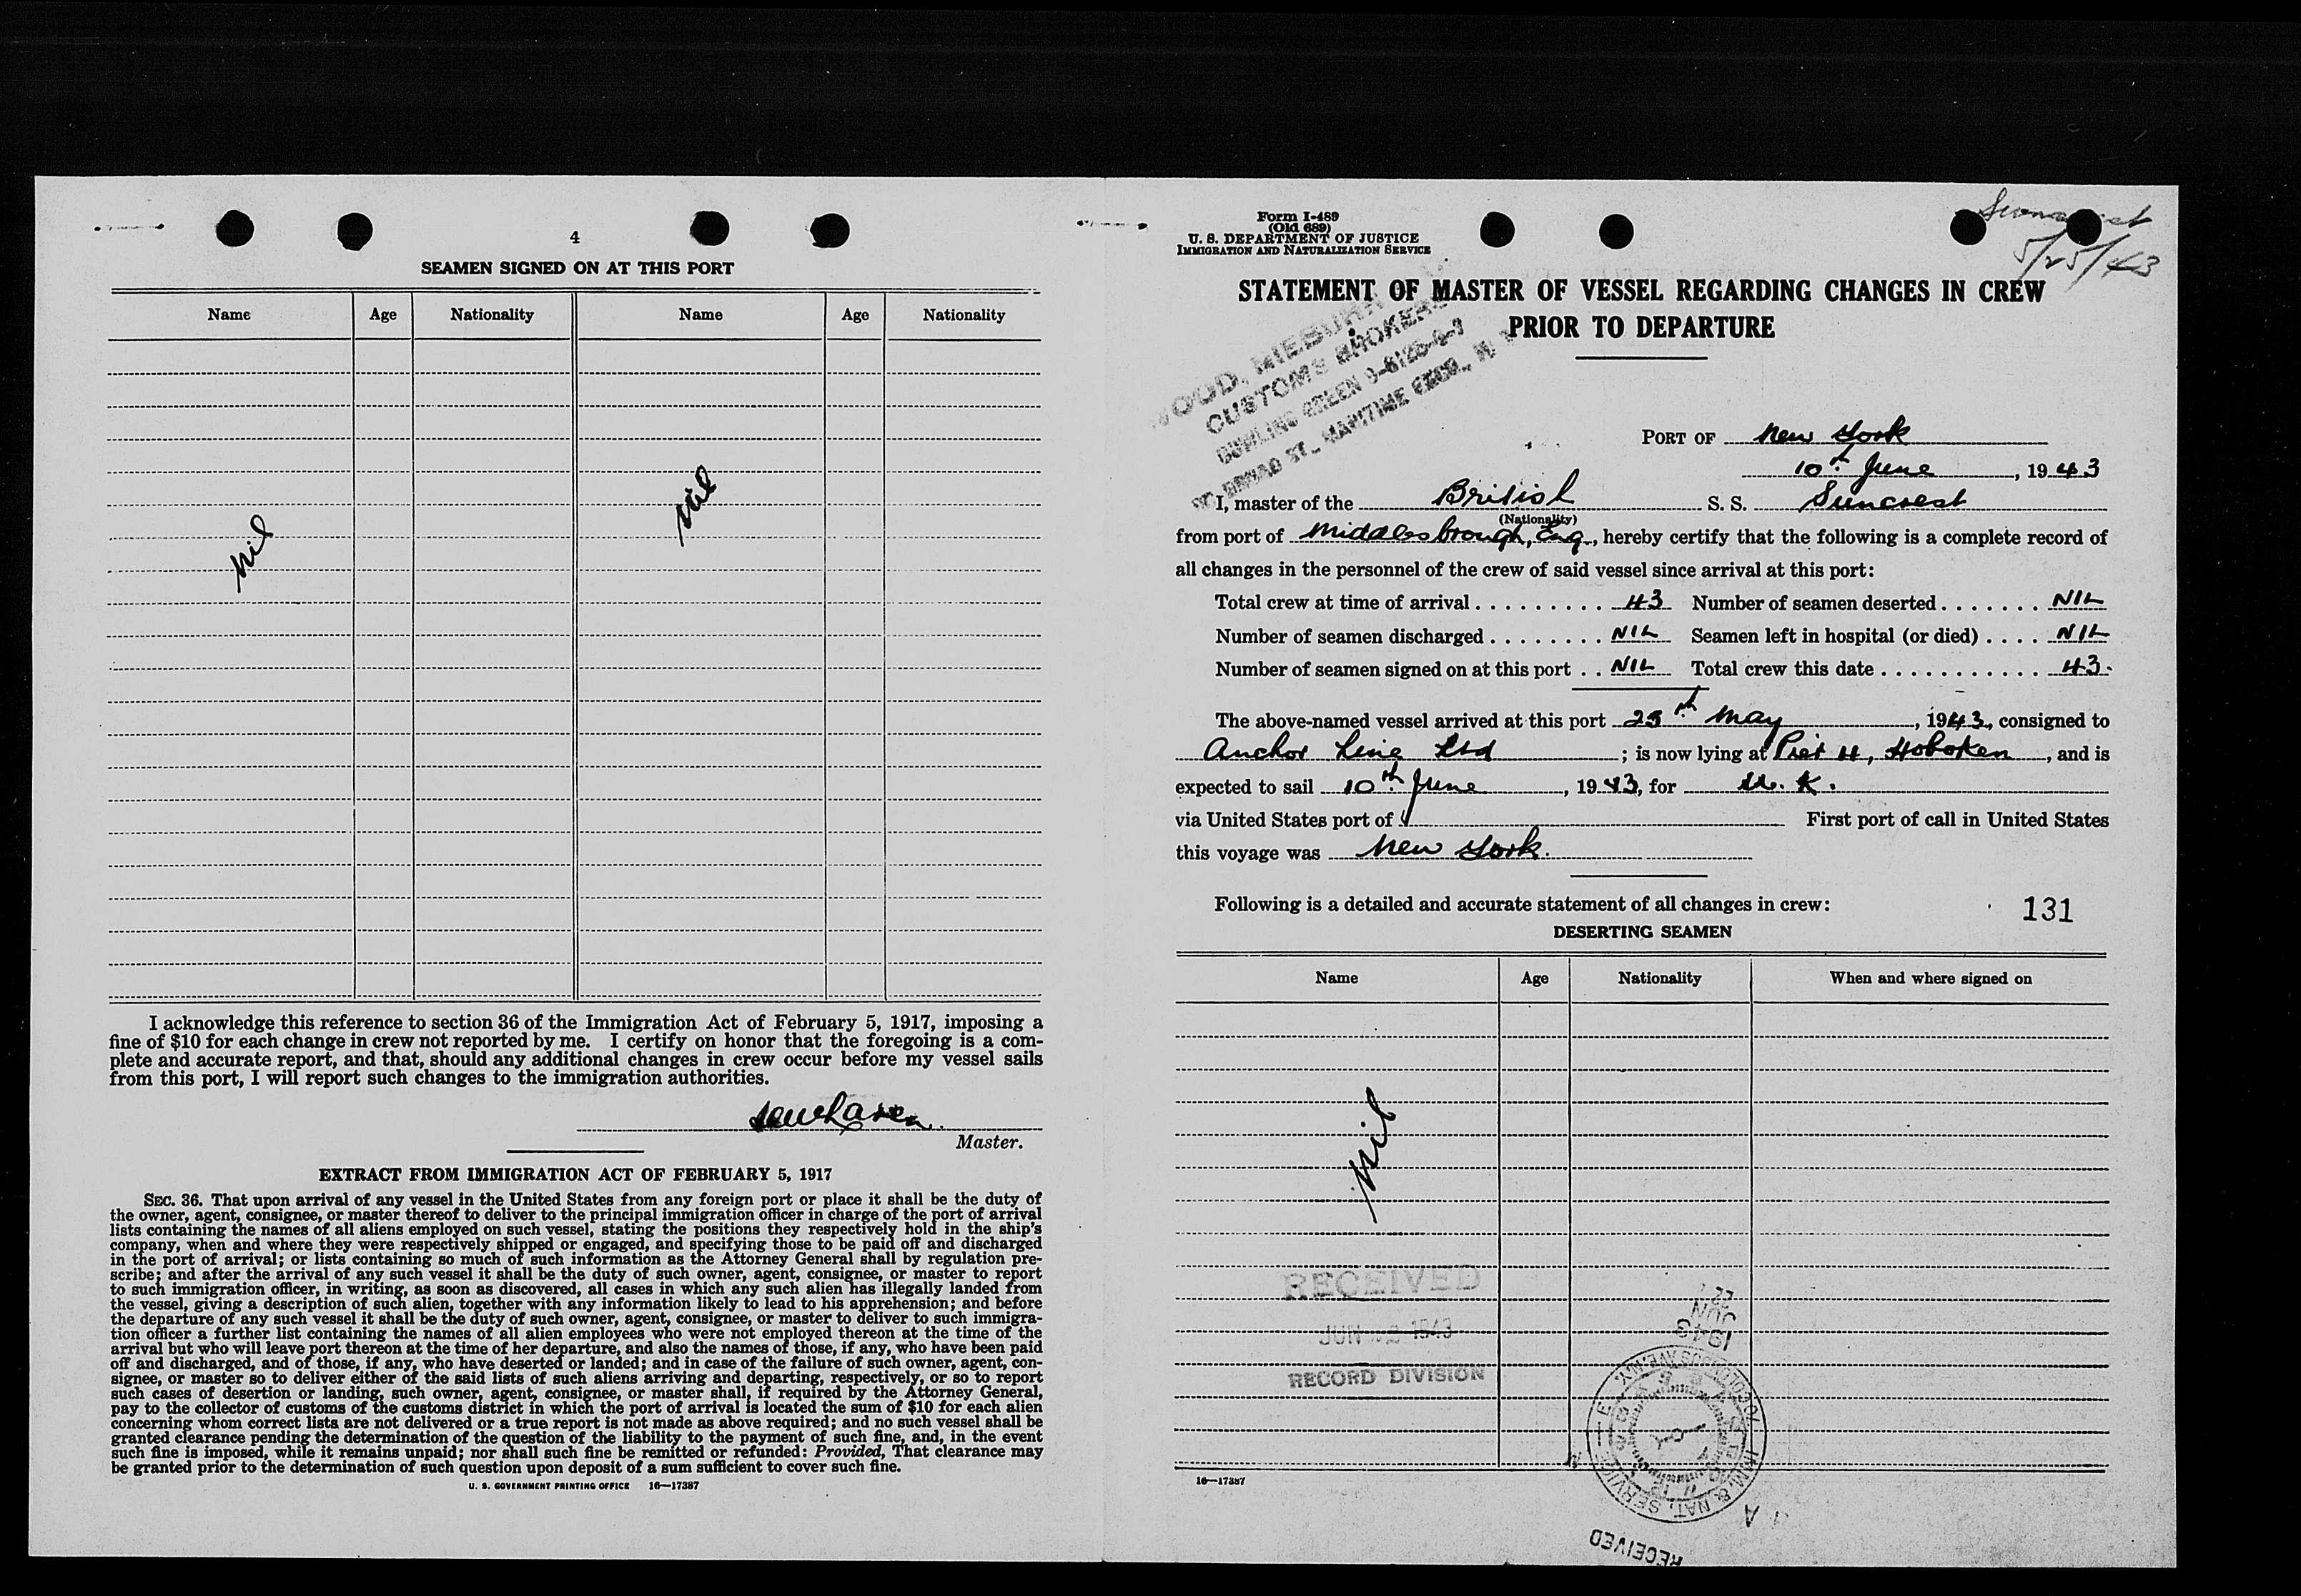 4
SEAMEN SIGNED ON AT THIS PORT
Name Age Nationality Name Age Nationality
Nil Nil
I acknowledge this reference to section 36 of the Immigration Act of February 5, 1917, imposing a
fine of $10 for each change in crew not reported by me. I certify on honor that the foregoing is a com-
plete and accurate report, and that, should any additional changes in crew occur before my vessel sails
from this port, I will report such changes to the immigration authorities.
Master.
EXTRACT FROM IMMIGRATION ACT OF FEBRUARY 5, 1917
SEC. 36. That upon arrival of any vessel in the United States from any foreign port or place it shall be the duty of
the owner, agent, consignee, or master thereof to deliver to the principal immigration officer in charge of the port of arrival
lists containing the names of all aliens employed on such vessel, stating the positions they respectively hold in the ship's
company, when and where they were respectively shipped or engaged, and specifying those to be paid off and discharged
in the port of arrival; or lists containing so much of such information as the Attorney General shall by regulation pre-
scribe; and after the arrival of any such vessel it shall be the duty of such owner, agent, consignee, or master to report
to such immigration officer, in writing, as soon as discovered, all cases in which any such alien has illegally landed from
the vessel, giving a description of such alien, together with any information likely to lead to his apprehension; and before
the departure of any such vessel it shall be the duty of such owner, agent, consignee, or master to deliver to such immigra-
tion officer a further list containing the names of all alien employees who were not employed thereon at the time of the
arrival but who will leave port thereon at the time of her departure, and also the names of those, if any, who have been paid
off and discharged, and of those, if any, who have deserted or landed; and in case of the failure of such owner, agent, con-
signee, or master so to deliver either of the said lists of such aliens arriving and departing, respectively, or so to report
such cases of desertion or landing, such owner, agent, consignee, or master shall, if required by the Attorney General,
pay to the collector of customs of the customs district in which the port of arrival is located the sum of $10 for each alien
concerning whom correct lists are not delivered or a true report is not made as above required; and no such vessel shall be
granted clearance pending the determination of the question of the liability to the payment of such fine, and, in the event
such fine is imposed, while it remains unpaid; nor shall such fine be remitted or refunded: Provided, That clearance may
be granted prior to the determination of such question upon deposit of a sum sufficient to cover such fine.
U. S. GOVERNMENT PRINTING OFFICE 16—17387
Form I-489
(Old 689)
U. S. DEPARTMENT OF JUSTICE
IMMIGRATION AND NATURALIZATION SERVICE
5/25/43
STATEMENT OF MASTER OF VESSEL REGARDING CHANGES IN CREW
PRIOR TO DEPARTURE
CUSTOMS BROKERS
BOWLING GREEN
BROAD ST., MARITIME EXCH., N
PORT OF New York
10th June, 1943
I, master of the British S. S. Suncrest
(Nationality)
from port of Middlesbrough, Eng., hereby certify that the following is a complete record of
all changes in the personnel of the crew of said vessel since arrival at this port:
Total crew at time of arrival . . . . . . . . . 43 Number of seamen deserted . . . . . . . NIL
Number of seamen discharged . . . . . . . . NIL Seamen left in hospital (or died) . . . . NIL
Number of seamen signed on at this port . . NIL Total crew this date . . . . . . . . . . . 43.
The above-named vessel arrived at this port 25th May, 1943, consigned to
Anchor Line Ltd; is now lying at Pier 4, Hoboken, and is
expected to sail 10th June, 1943, for U. K.
via United States port of First port of call in United States
this voyage was New York.
Following is a detailed and accurate statement of all changes in crew:
131
DESERTING SEAMEN
Name Age Nationality When and where signed on
Nil
RECEIVED
JUN 1943
RECORD DIVISION
JUN
1943
IMM. & NAT. SERVICE
RECEIVED
16—17387